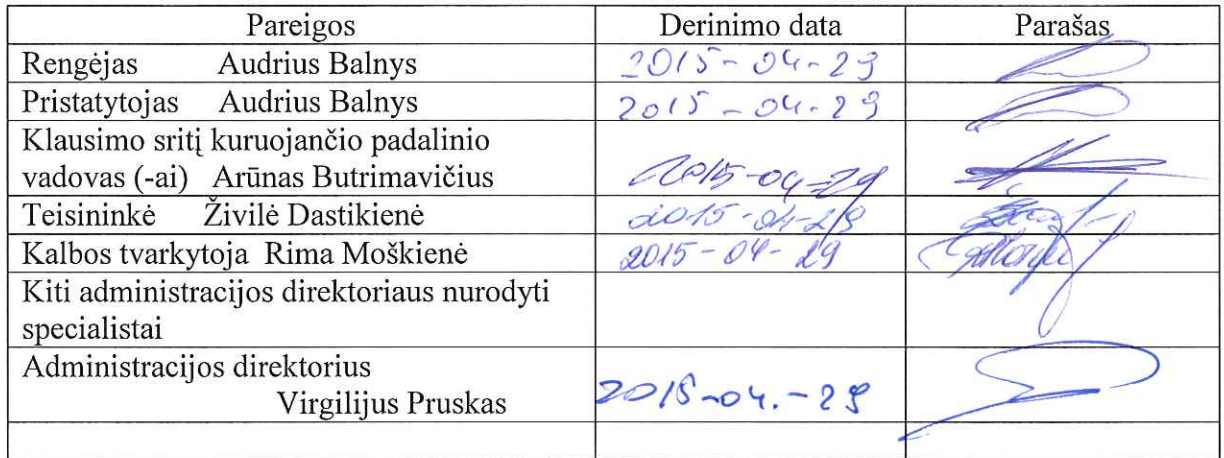 Pareigos Derinimo data Parašas
Rengėjas Audrius Balnys 2015-04-29
Pristatytojas Audrius Balnys 2015-04-29
Klausimo sritį kuruojančio padalinio
vadovas (-ai) Arūnas Butrimavičius 2015-04-29
Teisininkė Živilė Dastikienė 2015-04-29
Kalbos tvarkytoja Rima Moškienė 2015-04-29
Kiti administracijos direktoriaus nurodyti
specialistai
Administracijos direktorius
Virgilijus Pruskas 2015-04.-29